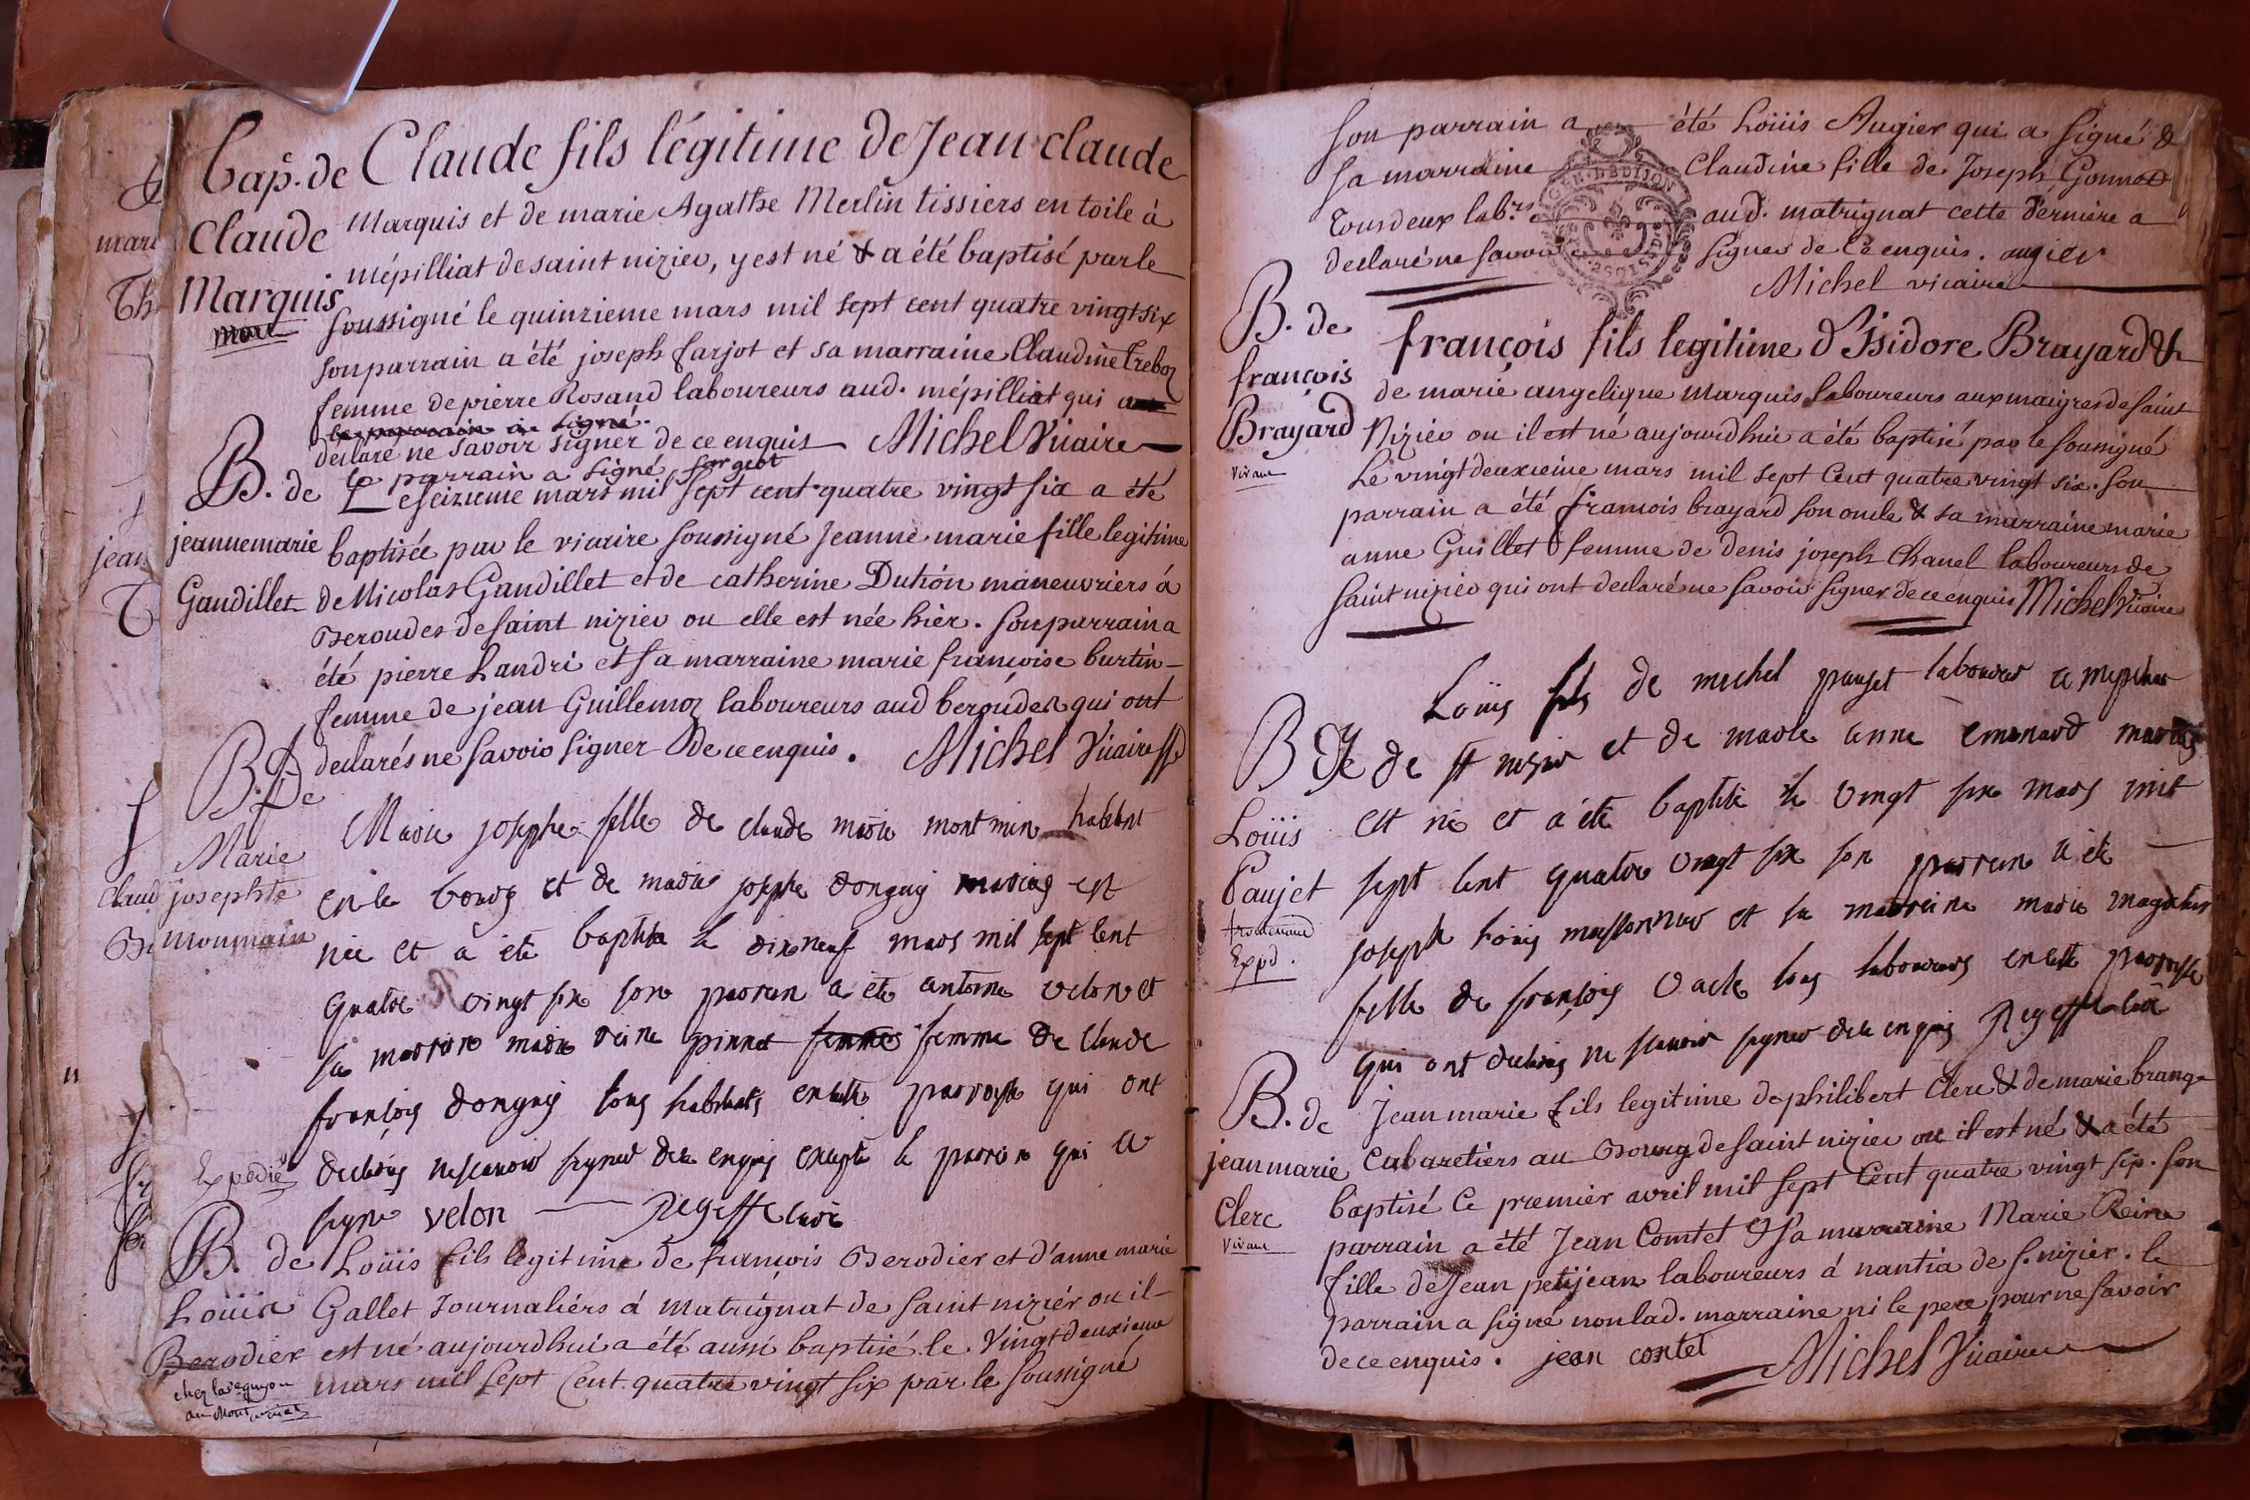 Bap. de Claude fils légitime de Jean claude
Claude Marquis et de marie Agathe Merlin tissiers en toile à
mépilliat de saint nizier, y est né & a été baptisé par le
Marquis soussigné le quinzieme mars mil sept cent quatre vingt six
mort
son parrain a été joseph farjot et sa marraine Claudine Treboz
femme de pierre Rosand laboureurs aud. mépilliat qui
declaré ne savoir signer de ce enquis Michel Vicaire
le parrain a signé fargeot
B. de Le seizieme mars mil sept cent quatre vingt six a été
jeanne marie baptisée par le vicaire soussigné Jeanne marie fille legitime
Gaudillet de Nicolas Gaudillet et de catherine Dution maneuvriers à
Beroudes de saint nizier ou elle est née hier. son parrain a
été pierre Landri et sa marraine marie françoise burtin
femme de jean Guillemoz laboureurs aud berouder qui ont
declarés ne savoir signer de ce enquis. Michel Vicaire
B. De
Marie josephe fille de claude marie montmin habitant
Marie
josephte en le bourg et de marie josephe donguy mariés est
Monmain née et a été baptisée le dix neuf mars mil sept cent
quatre vingt six son parrain a été antoine velon et
sa marraine marie reine pinnet femme femme de claude
françois donguy tous habitants en cette parroisse qui ont
Expedié declarés ne scavoir signer de ce enquis excepté le parrain qui a
signé velon Regeffe curé
B. de Loüis fils legitime de françois Berodier et d'anne marie
Loüis Gallet Journaliers à matrignat de saint nizier ou il
Berodier est né aujourdhui a été aussi baptisé le Vingt deuxieme
mars mil sept Cent quatre vingt six par le soussigné
son parrain a été Loüis Augier qui a signé &
sa marraine Claudine fille de Joseph Gonnod
tous deux labrs aud. matrignat cette derniere a
declaré ne savoir signer de ce enquis. augier
Michel vicaire
B. de
françois fils legitime d'Isidore Brayard &
françois de marie angelique Marquis laboureurs aux maigres de saint
Brayard Nizier ou il est né aujourdhui a été baptisé par le soussigné
Vivant Le vingt deuxieme mars mil sept Cent quatre vingt six. son
parrain a été francois brayard son oncle & sa marraine marie
anne Guillet femme de denis joseph Chanel laboureurs de
saint nizier qui ont declaré ne savoir signer de ce enquis Michel Vicaire
Loüis fils de michel paujet laboureur a
B De de st nizier et de marie anne emonard mariés
Loüis est né et a été baptisé le vingt six mars mil
Paujet sept cent quatre vingt six son parrain a été
joseph Loüis massonnier et sa marraine marie
Expd.
fille de françois vacle tous laboureurs en cette parroisse
qui ont declarés ne scavoir signer de ce enquis Regeffe curé
B. de Jean marie fils legitime de philibert Clerc & de marie brange
jean marie Cabaretiers au Bourg de saint nizier ou il est né & a été
Clerc baptisé Ce premier avril mil sept Cent quatre vingt six. son
Vivant parrain a été Jean Comtet & sa marraine Marie Reine
fille de Jean petijean laboureurs à nantia de s. nizier. le
parrain a signé non lad. marraine ni le pere pour ne savoir
de ce enquis. jean contet Michel Vicaire
GEN. DE DIJON